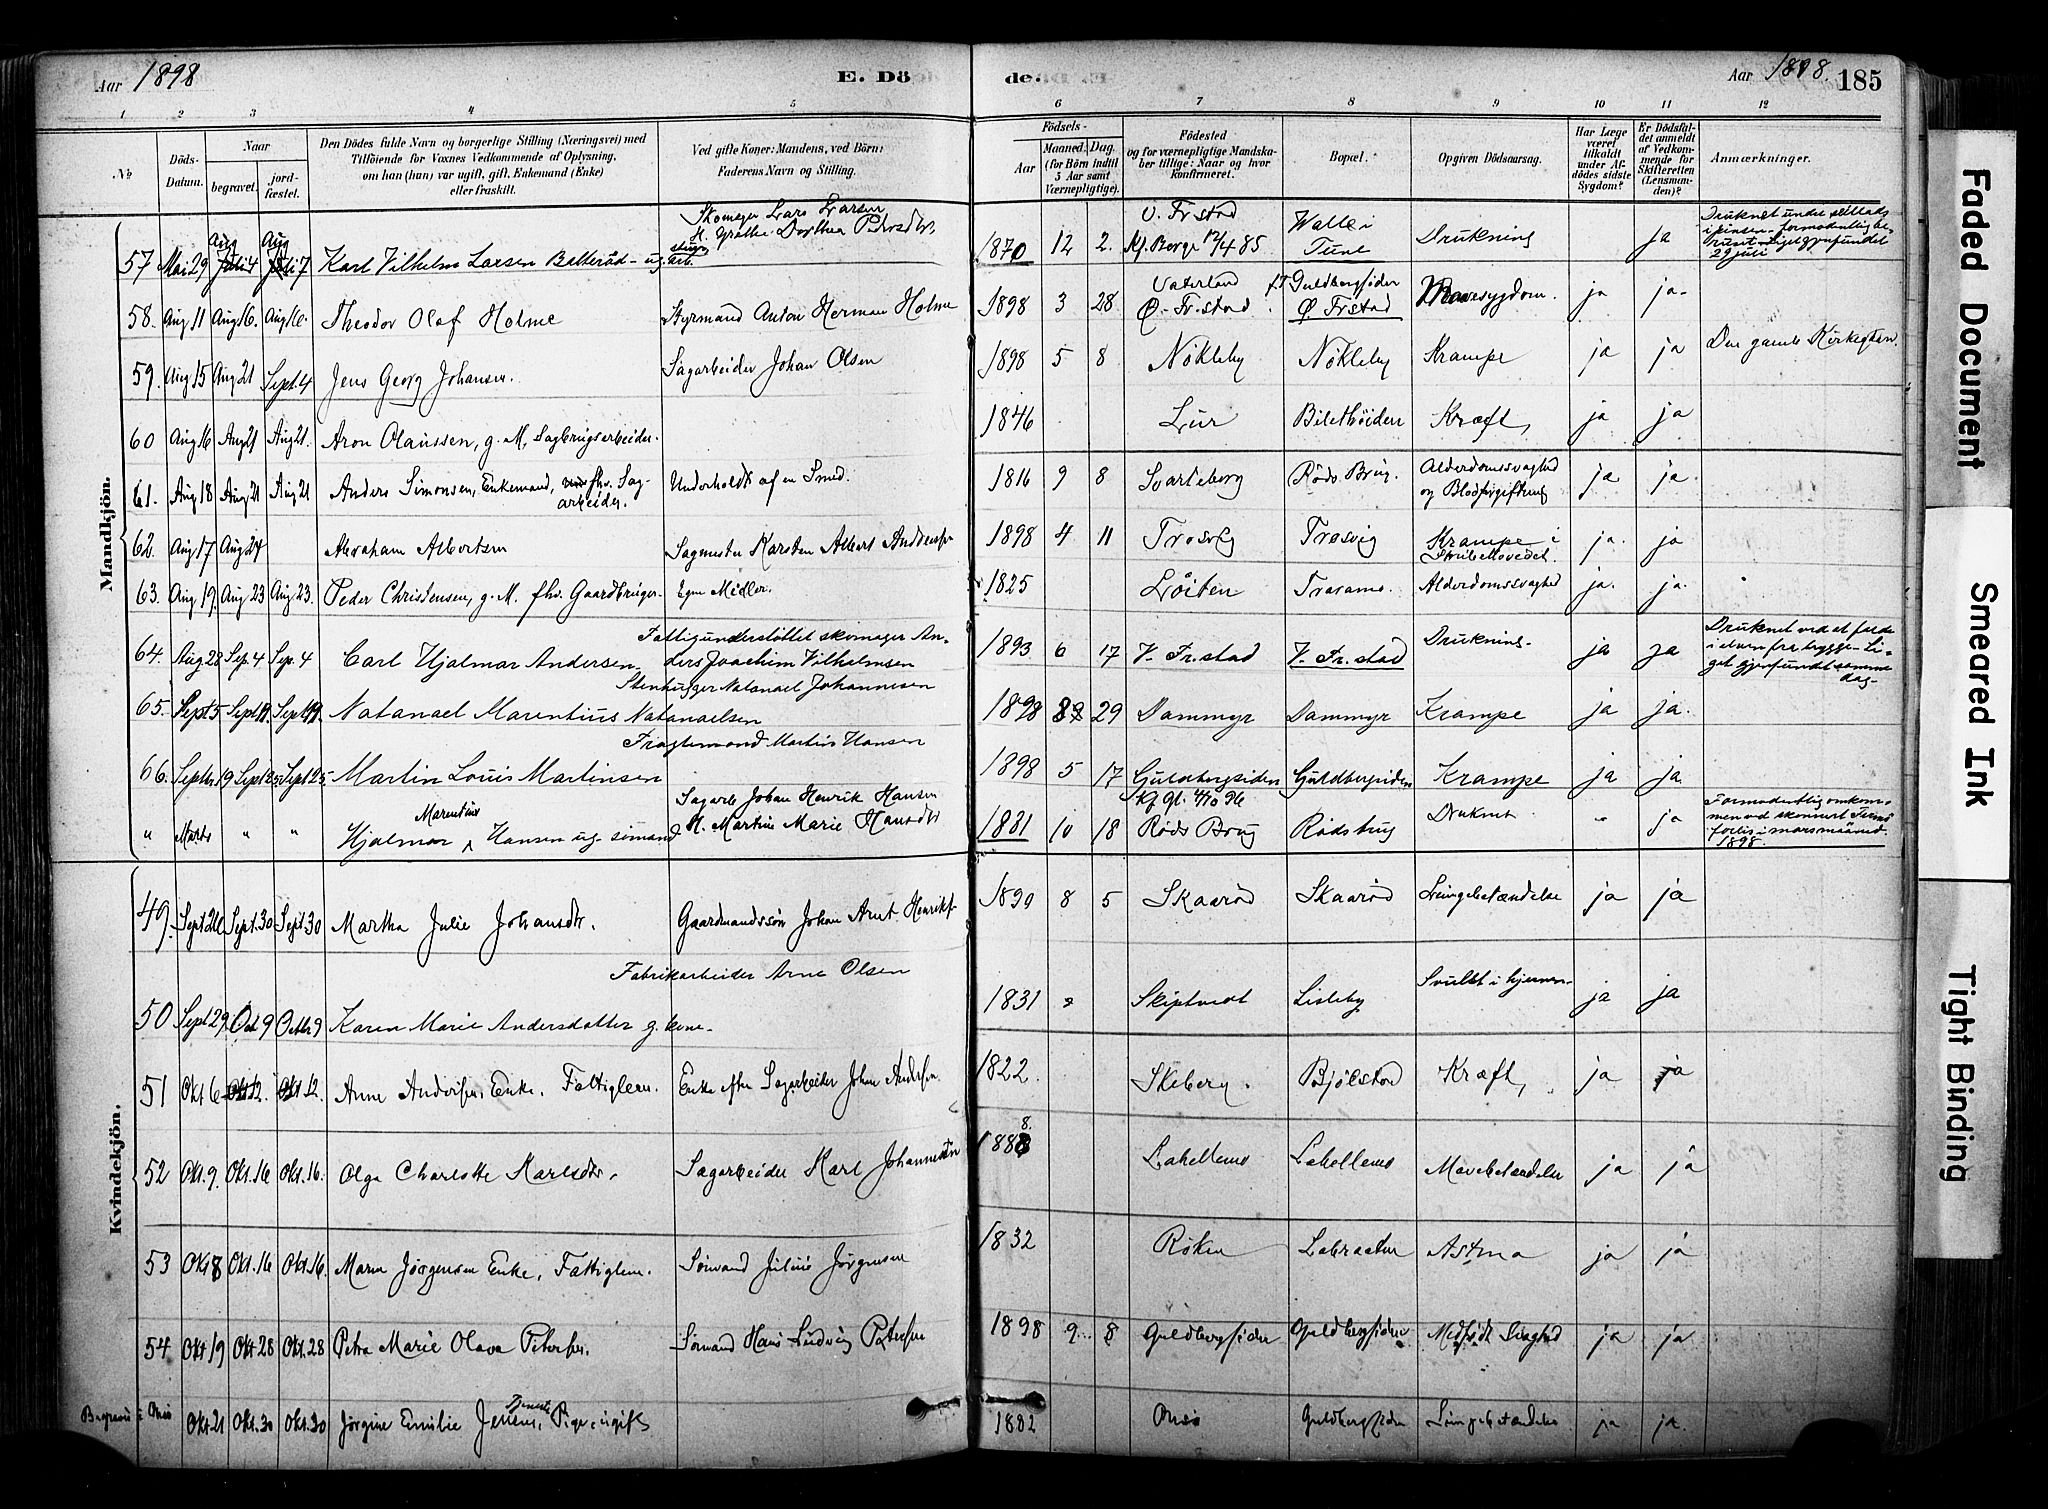 Aar 1898
E. Dö
de.
Aar 1898.
185
1 2 3 4 5 6 7 8 9 10 11 12
№
Döds-
Datum.
Naar
begravet.
jord-
fæstet.
Den Dödes fulde Navn og borgerlige Stilling (Næringsvei) med
Tilföiende for Voxnes Vedkommende af Oplysning,
om han (hun) var ugift, gift, Enkemand (Enke)
eller fraskilt.
Ved gifte Koner: Mandens, ved Börn:
Faderens Navn og Stilling.
Födsels-
Aar
Maaned. Dag.
(for Börn indtil
5 Aar samt
Værnepligtige).
Födested
og for værnepligtige Mandska-
ber tillige: Naar og hvor
konfirmeret.
Bopæl.
Opgiven Dödsaarsag.
Har Læge
været
tilkaldt
under Af-
dödes sidste
Sygdom?
Er Dödsfal-
det anmeldt
af Vedkom-
mende for
Skifteretten
(Lensman-
den)?
Anmærkninger.
Mandkjön.
Skomager Lars Larsen
H. Grethe Dorthea Pedersdtr.
V. Frstad
Walle i
Druknet under seilads
i pinsen - formodentlig be-
ruset - liget gjenfundet
29 juli
57 Mai 29 Aug Juli 4 Aug Juli 7 Karl Vilhelm Larsen Batterød - ug. arb. 1870 12 2. Kf. Borge 12/4 85 Tune Drukning ja
58. Aug 11 Aug 16. Aug 16. Theodor Olaf Holme Styrmand Anton Herman Holme 1898 3 28 Vaterland Ø. Fr.stad. Guldbergsiden Ø. Frstad Mavesygdom. ja ja.
59. Aug 15 Aug 21 Sept. 4 Jens Georg Johansen. Sagarbeider Johan Olsen 1898 5 8 Nökleby Nökleby Krampe ja ja Den gamle Kirkegaard.
60 Aug 16 Aug 21 Aug 21. Aron Olaussen, g. M, Sagbrugsarbeider. 1846 Lur Kræft, ja ja
61. Aug 18 Aug 21 Aug 21 Anders Simonsen, Enkemand, fhv. Sag-
arbeider. Underholdt af en Smed. 1816 9 8 Svarteborg Røds Brug. Alderdomssvaghed
og Blodforgiftning ja ja.
62. Aug 17 Aug 24 Abraham Albertsen Sagmester Karsten Albert Andersen 1898 4 11 Trosvig Trosvig Krampe i
Strubehovedet. ja. ja
63. Aug 19. Aug 23 Aug 23. Peder Christensen, g. M. fhv. Gaardbruger. Egne Midler. 1825 Löiten Traramo. Alderdomssvaghed ja. ja.
Fattigunderstöttet skomager An-
64. Aug 28 Sep. 4 Sep. 4 Carl Hjalmar Andersen. ders Joachim Vilhelmsen 1893 6 17 V. Fr.stad V. Fr.stad Druknins- ja ja Druknet ved at falde
i elven fra brygge. Li-
get gjenfundt samme
dag-
Stenhugger Natanael Johannesen
65. Sept 5 Sept 11. Sept 11. Natanael Marentius Natanaelsen 1898 8 29 Dammyr Dammyr Krampe ja ja.
Fragtemand Martin Hansen
66. Septbr. 19 Sept 25. Sept 25. Martin Louis Martinsen 1898 5 17 Guldbergsiden Guldbergsiden Krampe ja ja.
Sagarb. Johan Henrik Hansen
H. Martine Marie Hansdtr
" Marts " " Hjalmar Marentius Hansen ug. sömand 1881 10 18 Kf. Gl. 4/10 96
Røds Brug Rødsbrug Druknet " ja Formodentlig omkom-
men ved skonnert
forlis i mars maaned
1898.
Kvindekjön.
49. Sept 26 Sept. 30 Sept. 30 Martha Julie Johansdtr. Gaardmandssön Johan Arnt Henriks. 1890 8 5 Skaaröd Skaaröd Lungebetændelse ja ja
Fabrikarbeider Arne Olsen
50 Sept 29 Oct 9 Octbr 9 Karen Marie Andersdatter g. kone. 1831 Skiptvedt Lisleby Svulst i hjernen. ja ja
51 Okt 6 Okt 12. Okt 12. Anne Andersen, Enke, Fattiglem. Enke efter Sagarbeider Johan Andersen. 1822. Skeberg. Bjölstad Kræft, ja ja
52 Okt. 9. Okt. 16 Okt. 16. Olga Charlotte Karlsdtr. Sagarbeider Karl Johannesen 1888 Lahellemo Lahellemo Mavebetændelse ja ja
53 Okt 8 Okt. 16 Okt. 16. Maren Jørgensen Enke, Fattiglem. Sømand Julius Jørgensen 1832 Röken Labraaten Astma ja ja
54 Okt 19 Okt 28 Okt. 28 Petra Marie Olava Petersen. Sømand Hans Ludvig Petersen 1898 9. 8 Guldbergsiden Guldbergsiden Medfødt Svaghed ja ja
Begravet i Onsö Okt. 21 Okt. 30 Okt. 30 Jørgine Emilie Jensen, Tjeneste Pige, ugift 1882 Onsö Guldbergsiden Lungebetændelse ja ja.
Faded Document
Smeared Ink
Tight Binding